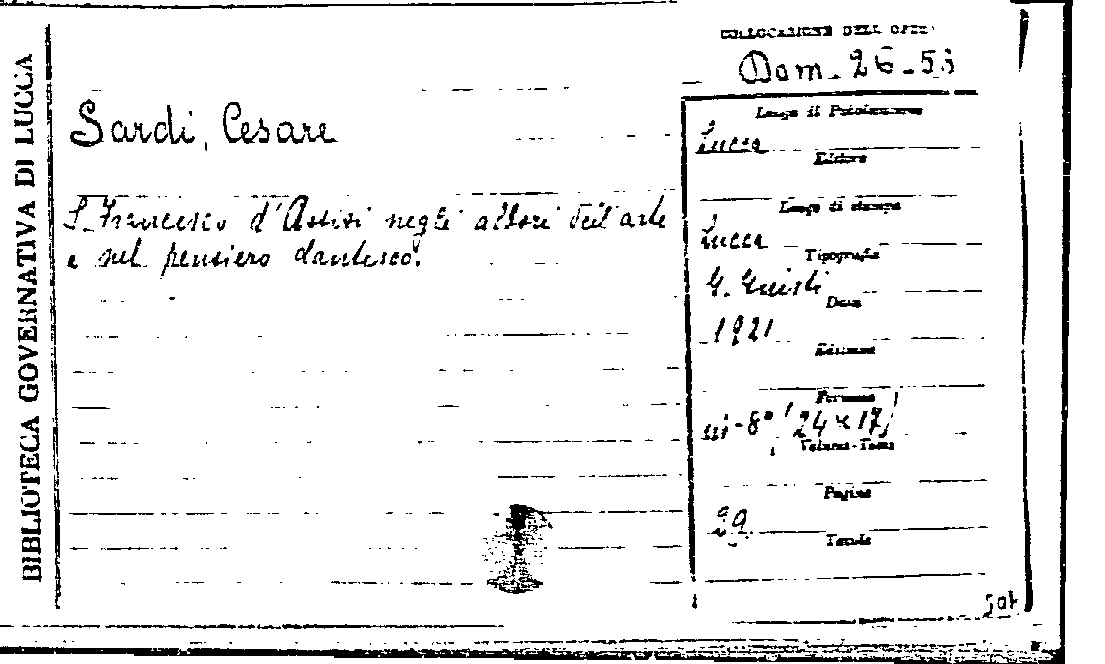 BIBLIOTECA GOVERNATIVA DI LUCCA
COLLOCAZIONE DELL'OPERA
Dom. 26-53
Sardi, Cesare
S. Francesco d'Assisi negli albori dell'arte
e nel pensiero dantesco.
Luogo di Pubblicazione
Lucca
Editore
Luogo di stampa
Lucca
Tipografia
G. Giusti
Data
1921
Edizione
Formato
in-8° (24x17)
Volume-Tomo
Pagine
29
Tavole